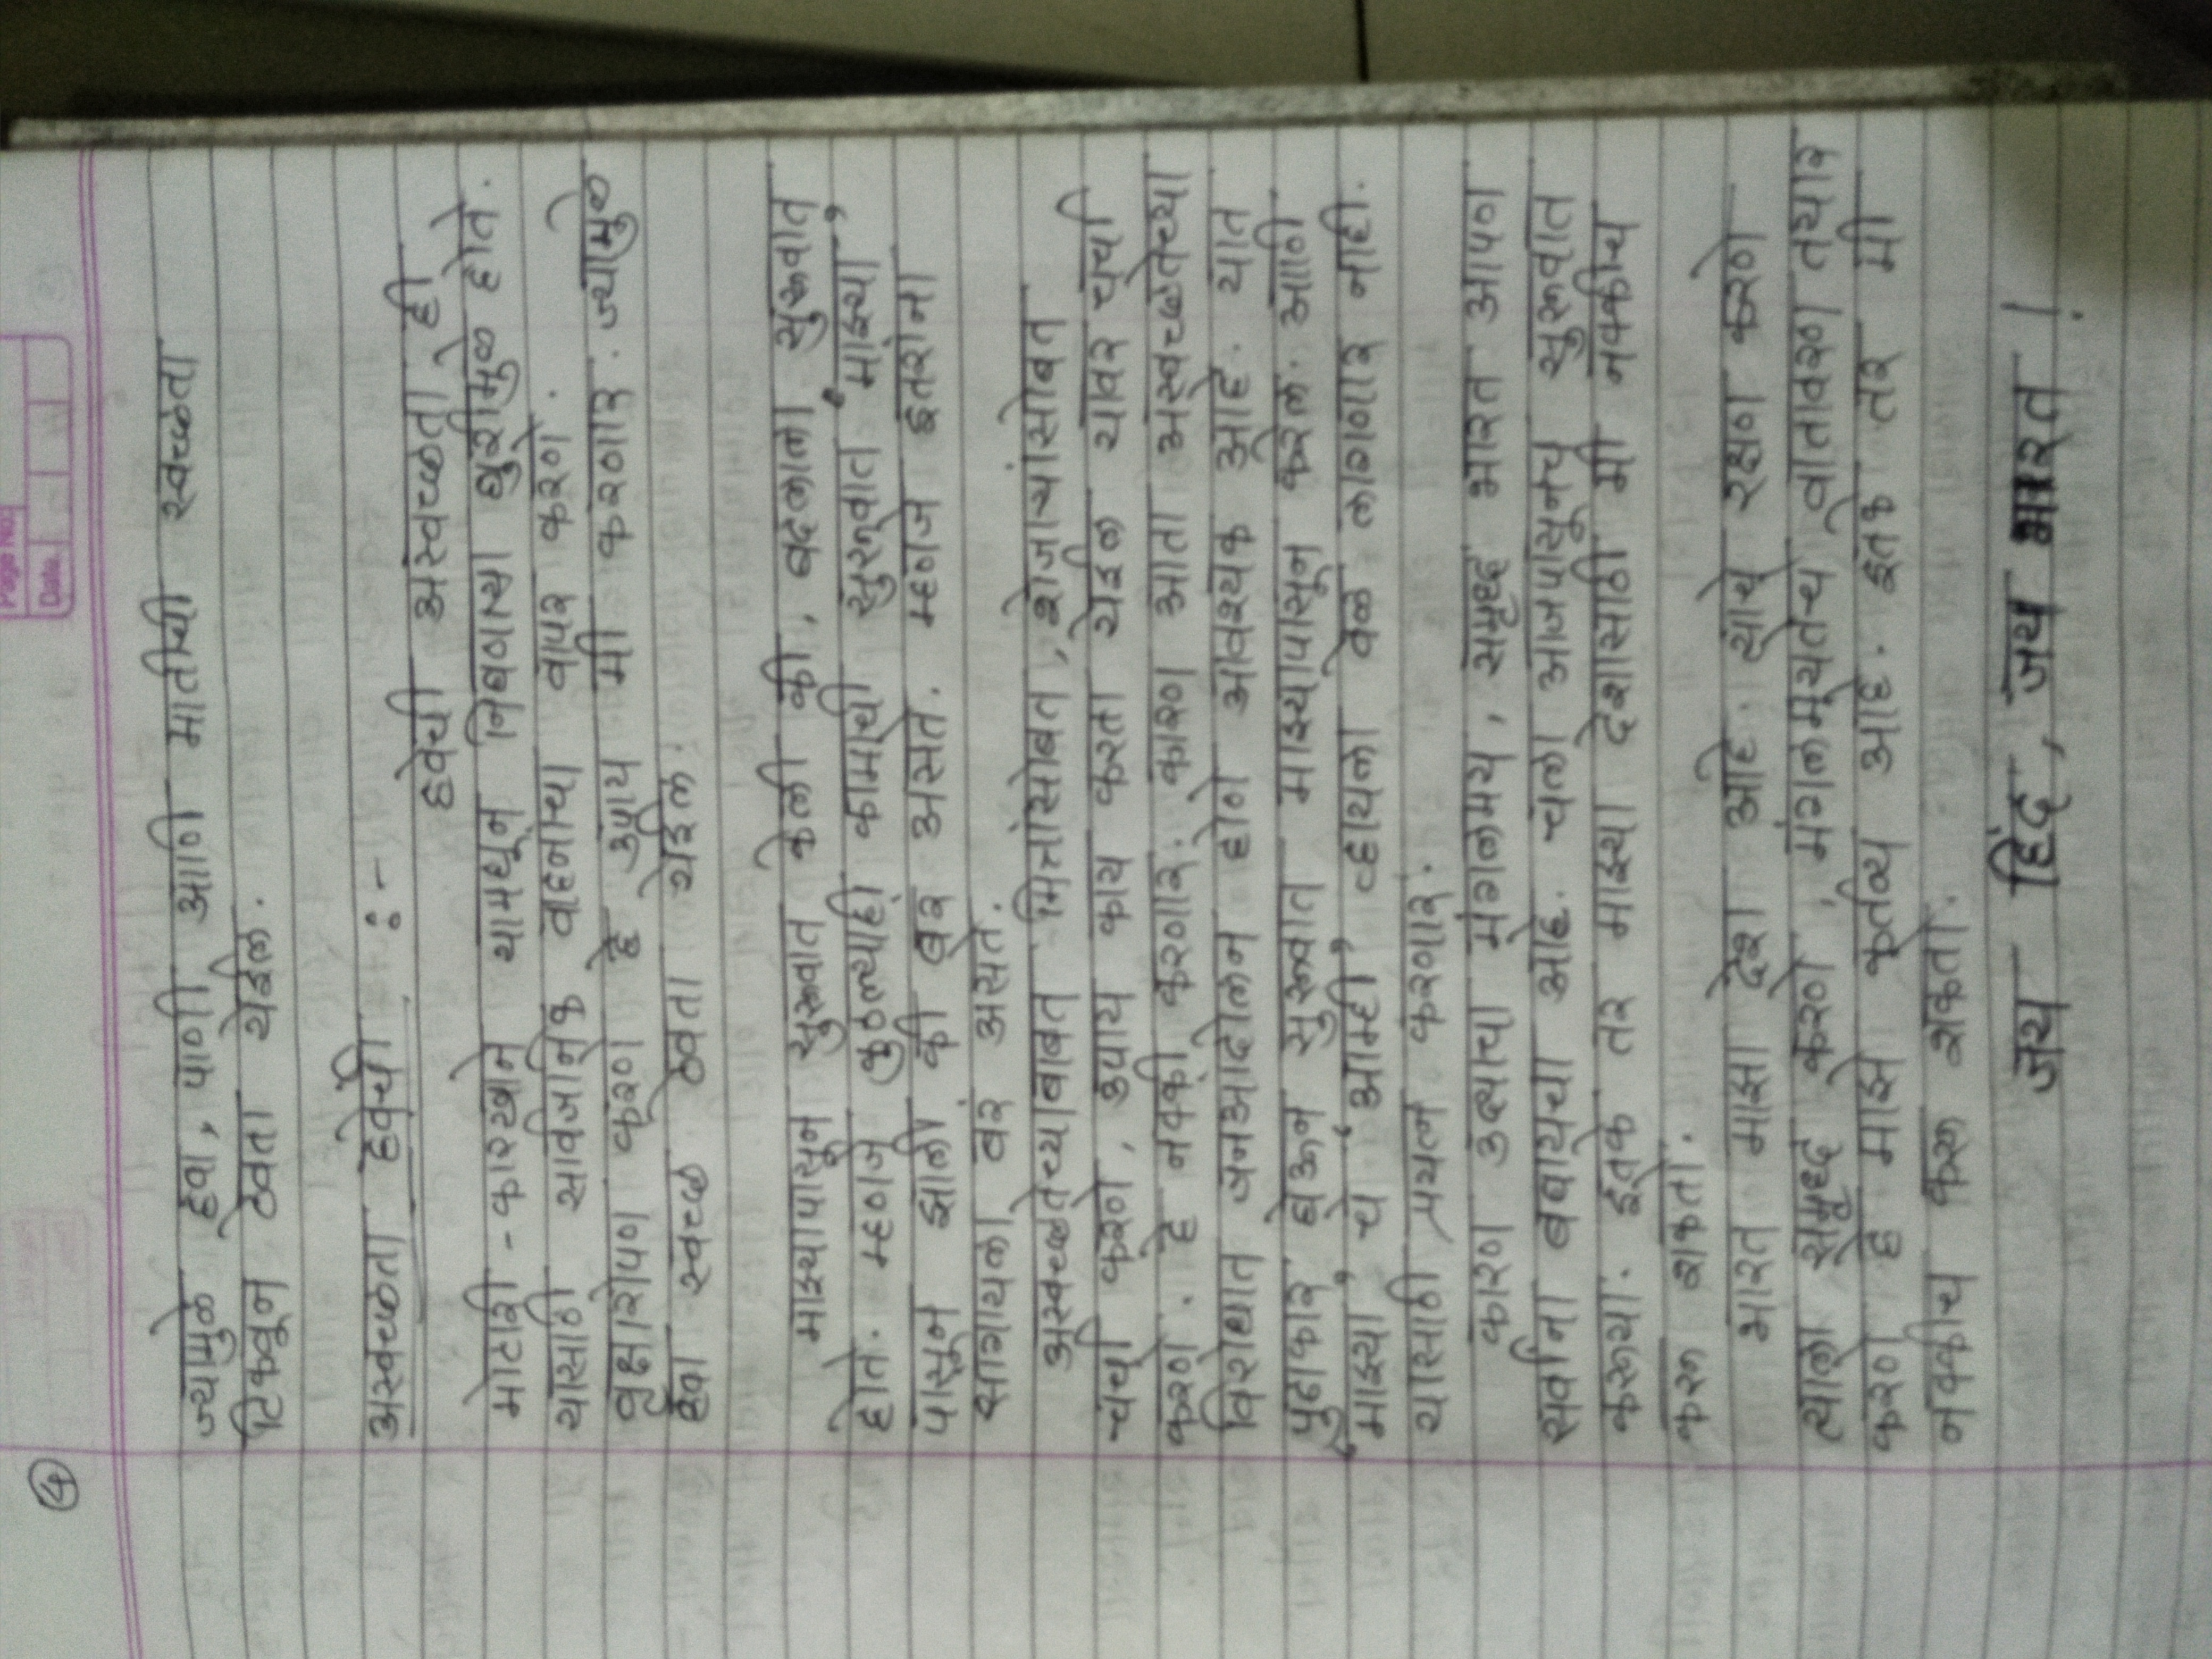 ④
Page No.
Date
ज्यामुळे हवा, पाणी आणि मातीची स्वच्छता
टिकवून ठेवता येईल.
अस्वच्छता हवेची :-
हवेची अस्वच्छता ही
मोटारी - कारखाने यामधून निघणाऱ्या धुरीमुळे होते.
यासाठी सार्वजनिक वाहनाचा वापर करणे.
वृक्षारोपण करणे हे उपाय मी करणार. ज्यामुळे
हवा स्वच्छ ठेवता येईल.
माझ्यापासून सुरूवात केली की, बदलाला सुरूवात
होते. म्हणजे कुठल्याही कामाची सुरूवात "माझ्या"
पासून झाली की बरं असते. म्हणजे इतरांना
सागायला बरं असते.
अस्वच्छतेच्याबाबत मित्रांसोबत, शेजाऱ्यांसोबत
चर्चा करणे, उपाय काय करता येईल यावर चर्चा
करणे. हे नक्की करणार. कारण आता अस्वच्छतेच्या
विरोधात जनआंदोलन होणे आवश्यक आहे. यात
पुढाकार घेऊन सुरूवात माझ्यापासून करेल. आणि
"माझ्या" चे "आम्ही" व्हायला वेळ लागणार नाही.
यासाठी प्रयत्न करणार.
कारण उद्याचा मंगलमय, समृध्द भारत आपण
सर्वांना बघायचा आहे. चला आजपासूनच सुरूवात
करूया. इतके तर माझ्या देशासाठी मी नक्कीच
करू शकतो.
भारत माझा देश आहे. त्याचे रक्षण करणे
त्याला समृध्द करणे, मंगलमयतेचे वातावरण तयार
करणे हे माझे कर्तव्य आहे. इतके तर मी
नक्कीच करू शकतो.
जय हिंद, जय भारत!